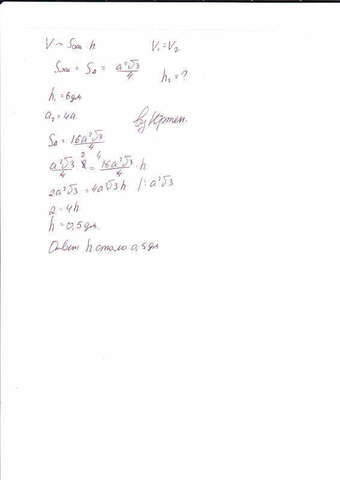 V = Sосн · h V₁ = V₂
Sосн = S△ = a²√3/4 h₂ = ?
h₁ = 8дм
a₂ = 4a
S△ = 16a²√3/4
a²√3/4 · 8 = 16a²√3/4 · h
2a²√3 = 4a²√3h /: a²√3
2 = 4h
h = 0,5дм
Ответ h стало 0,5дм